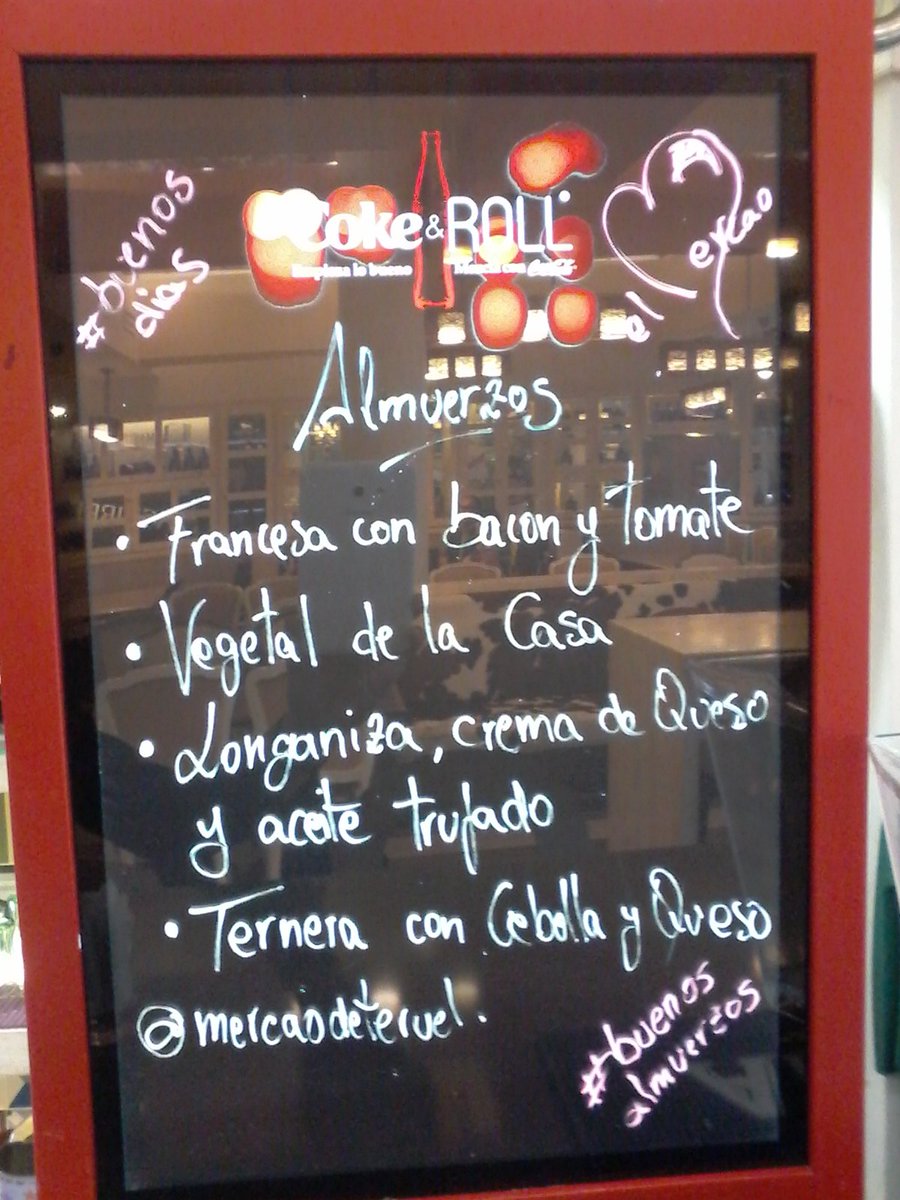 #buenos
dias
Coke & ROLL
Empieza lo bueno
Mezcla con Coca-Cola
el mercao
Almuerzos
• Francesa con bacon y Tomate
• Vegetal de la Casa
• Longaniza, crema de Queso
y aceite trufado
• Ternera con Cebolla y Queso
@mercaodeteruel.
#buenos
almuerzos